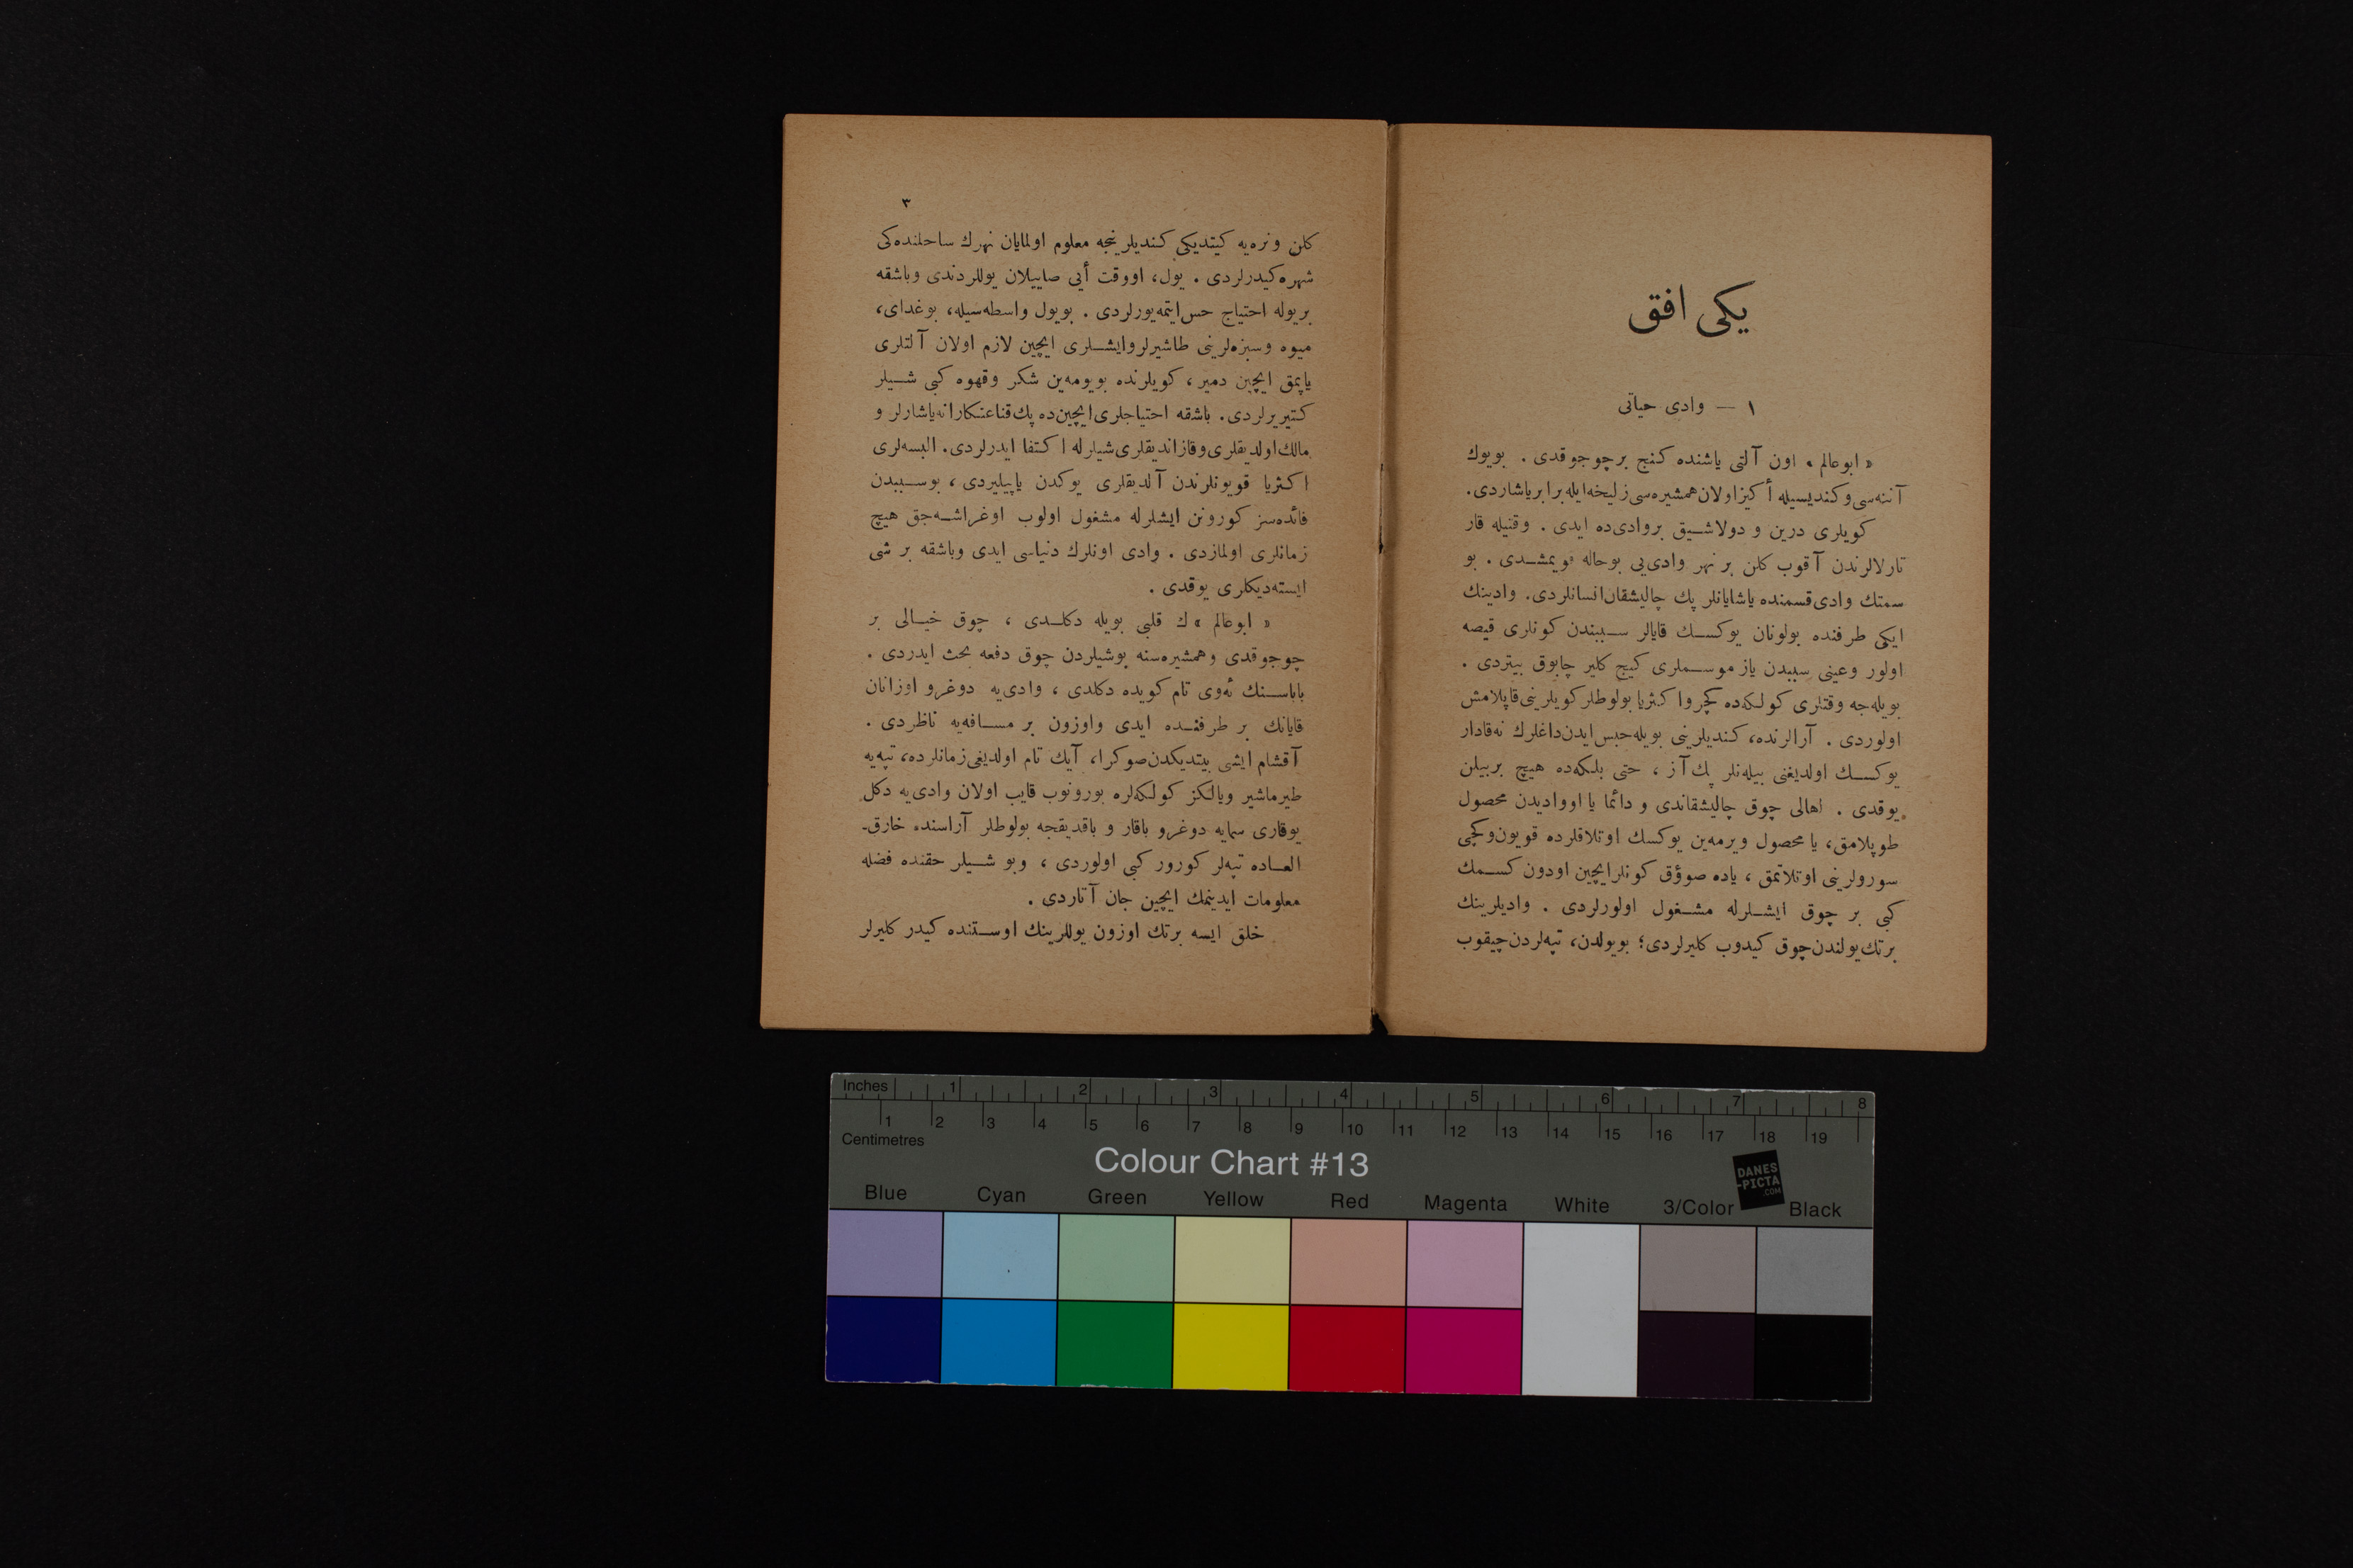 یكی افق
١ — وادی حیاتی
« ابوعالم » اون آلتی یاشنده كنج برچوجوقدی . بویوك
آننه‌سی وكندیسیله أكیزاولان همشیره‌سی زلیخه‌ایله برابر یاشاردی.
كویلری درین و دولاشـیق بروادی‌ده ایدی . وقتیله قار
تارلالرندن آقوب كلن بر نهر وادی‌یی بوحاله قویمشـدی . بو
سمتك وادی قسمنده یاشایانلر پك چالیشقان انسانلردی. وادینك
ایكی طرفنده بولونان یوكسـك قایالر سـببندن كونلری قیصه
اولور وعینی سببدن یاز موسـملری كیج كلیر چابوق بیتردی .
بویله‌جه وقتلری كولكه‌ده كچر واكثریا بولوطلر كویلرینی قاپلامش
اولوردی . آرالرنده، كندیلرینی بویله حبس ایدن داغلرك نه‌قادار
یوكسـك اولدیغنی بیله‌نلر پك آز ، حتی بلكه‌ده هیچ بربیلن
یوقدی . اهالی چوق چالیشقاندی و دائما یا اووادیدن محصول
طوپلامق، یا محصول ویرمه‌ین یوكسك اوتلاقلرده قویون وكچی
سورولرینی اوتلاتمق ، یاده صوؤق كونلرایچین اودون كسـمك
كبی بر چوق ایشـلرله مشـغول اولورلردی . وادیلرینك
برتك یولندن چوق كیدوب كلیرلردی؛ بویولدن، تپه‌لردن چیقوب
٣
كلن ونره‌یه كیتدیكی كندیلرینجه معلوم اولمایان نهرك ساحلنده‌كی
شهره كیدرلردی . یول، اووقت أیی صاییلان یوللردندی وباشقه
بریوله احتیاج حس ایتمه‌یورلردی . بویول واسطه‌سیله، بوغدای،
میوه وسبزه‌لرینی طاشیرلر وایشـلری ایچین لازم اولان آلتلری
یاپمق ایچین دمیر ، كویلرنده بویومه‌ین شكر وقهوه كبی شـیلر
كتیریرلردی. باشقه احتیاجلری ایچین‌ده پك قناعتكارانه یاشارلر و
مالك اولدیقلری وقازاندیقلری شیلرله اكتفا ایدرلردی. البسه‌لری
اكثریا قویونلرندن آلدیقلری یوكدن یاپیلیردی ، بوسـببدن
فائده‌سز كورونن ایشلرله مشغول اولوب اوغراشـه‌جق هیچ
زمانلری اولمازدی . وادی اونلرك دنیاسی ایدی وباشقه بر شی
ایسته‌دیكلری یوقدی .
« ابوعالم » ك قلبی بویله دكلـدی ، چوق خیـالی بر
چوجوقدی وهمشیره‌سنه بوشیلردن چوق دفعه بحث ایدردی .
باباسـنك ئه‌وی تام كویده دكلدی ، وادی‌یه دوغرو اوزانان
قایانك بر طرفنـده ایدی واوزون بر مسـافه‌یه ناظردی .
آقشام ایشی بیتدیكدن صوكرا، آیك تام اولدیغی زمانلرده، تپه‌یه
طیرماشیر ویالكز كولكه‌لره بورونوب قایب اولان وادی‌یه دكل
یوقاری سمایه دوغرو باقار و باقدیقجه بولوطلر آراسنده خارق‌ـ
العـاده تپه‌لر كورور كبی اولوردی ، وبو شـیلر حقنده فضله
معلومات ایدینمك ایچین جان آتاردی .
خلق ایسه برتك اوزون یوللرینك اوسـتنده كیدر كلیرلر
Inches 1 2 3 4 5 6 7 8
1 2 3 4 5 6 7 8 9 10 11 12 13 14 15 16 17 18 19
Centimetres
Colour Chart #13
DANES
-PICTA
.COM
Blue Cyan Green Yellow Red Magenta White 3/Color Black